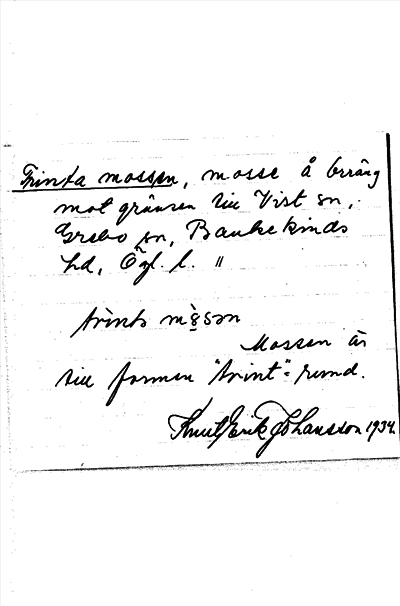 Trinta mossen, mosse å Berräng
mot gränsen till Vist sn,
Grebo sn, Bankekinds
hd, Ögl. l. "
trìnta mòsən
Mossen är
till formen "trint"= rund.
Knut Erik Johansson 1934.